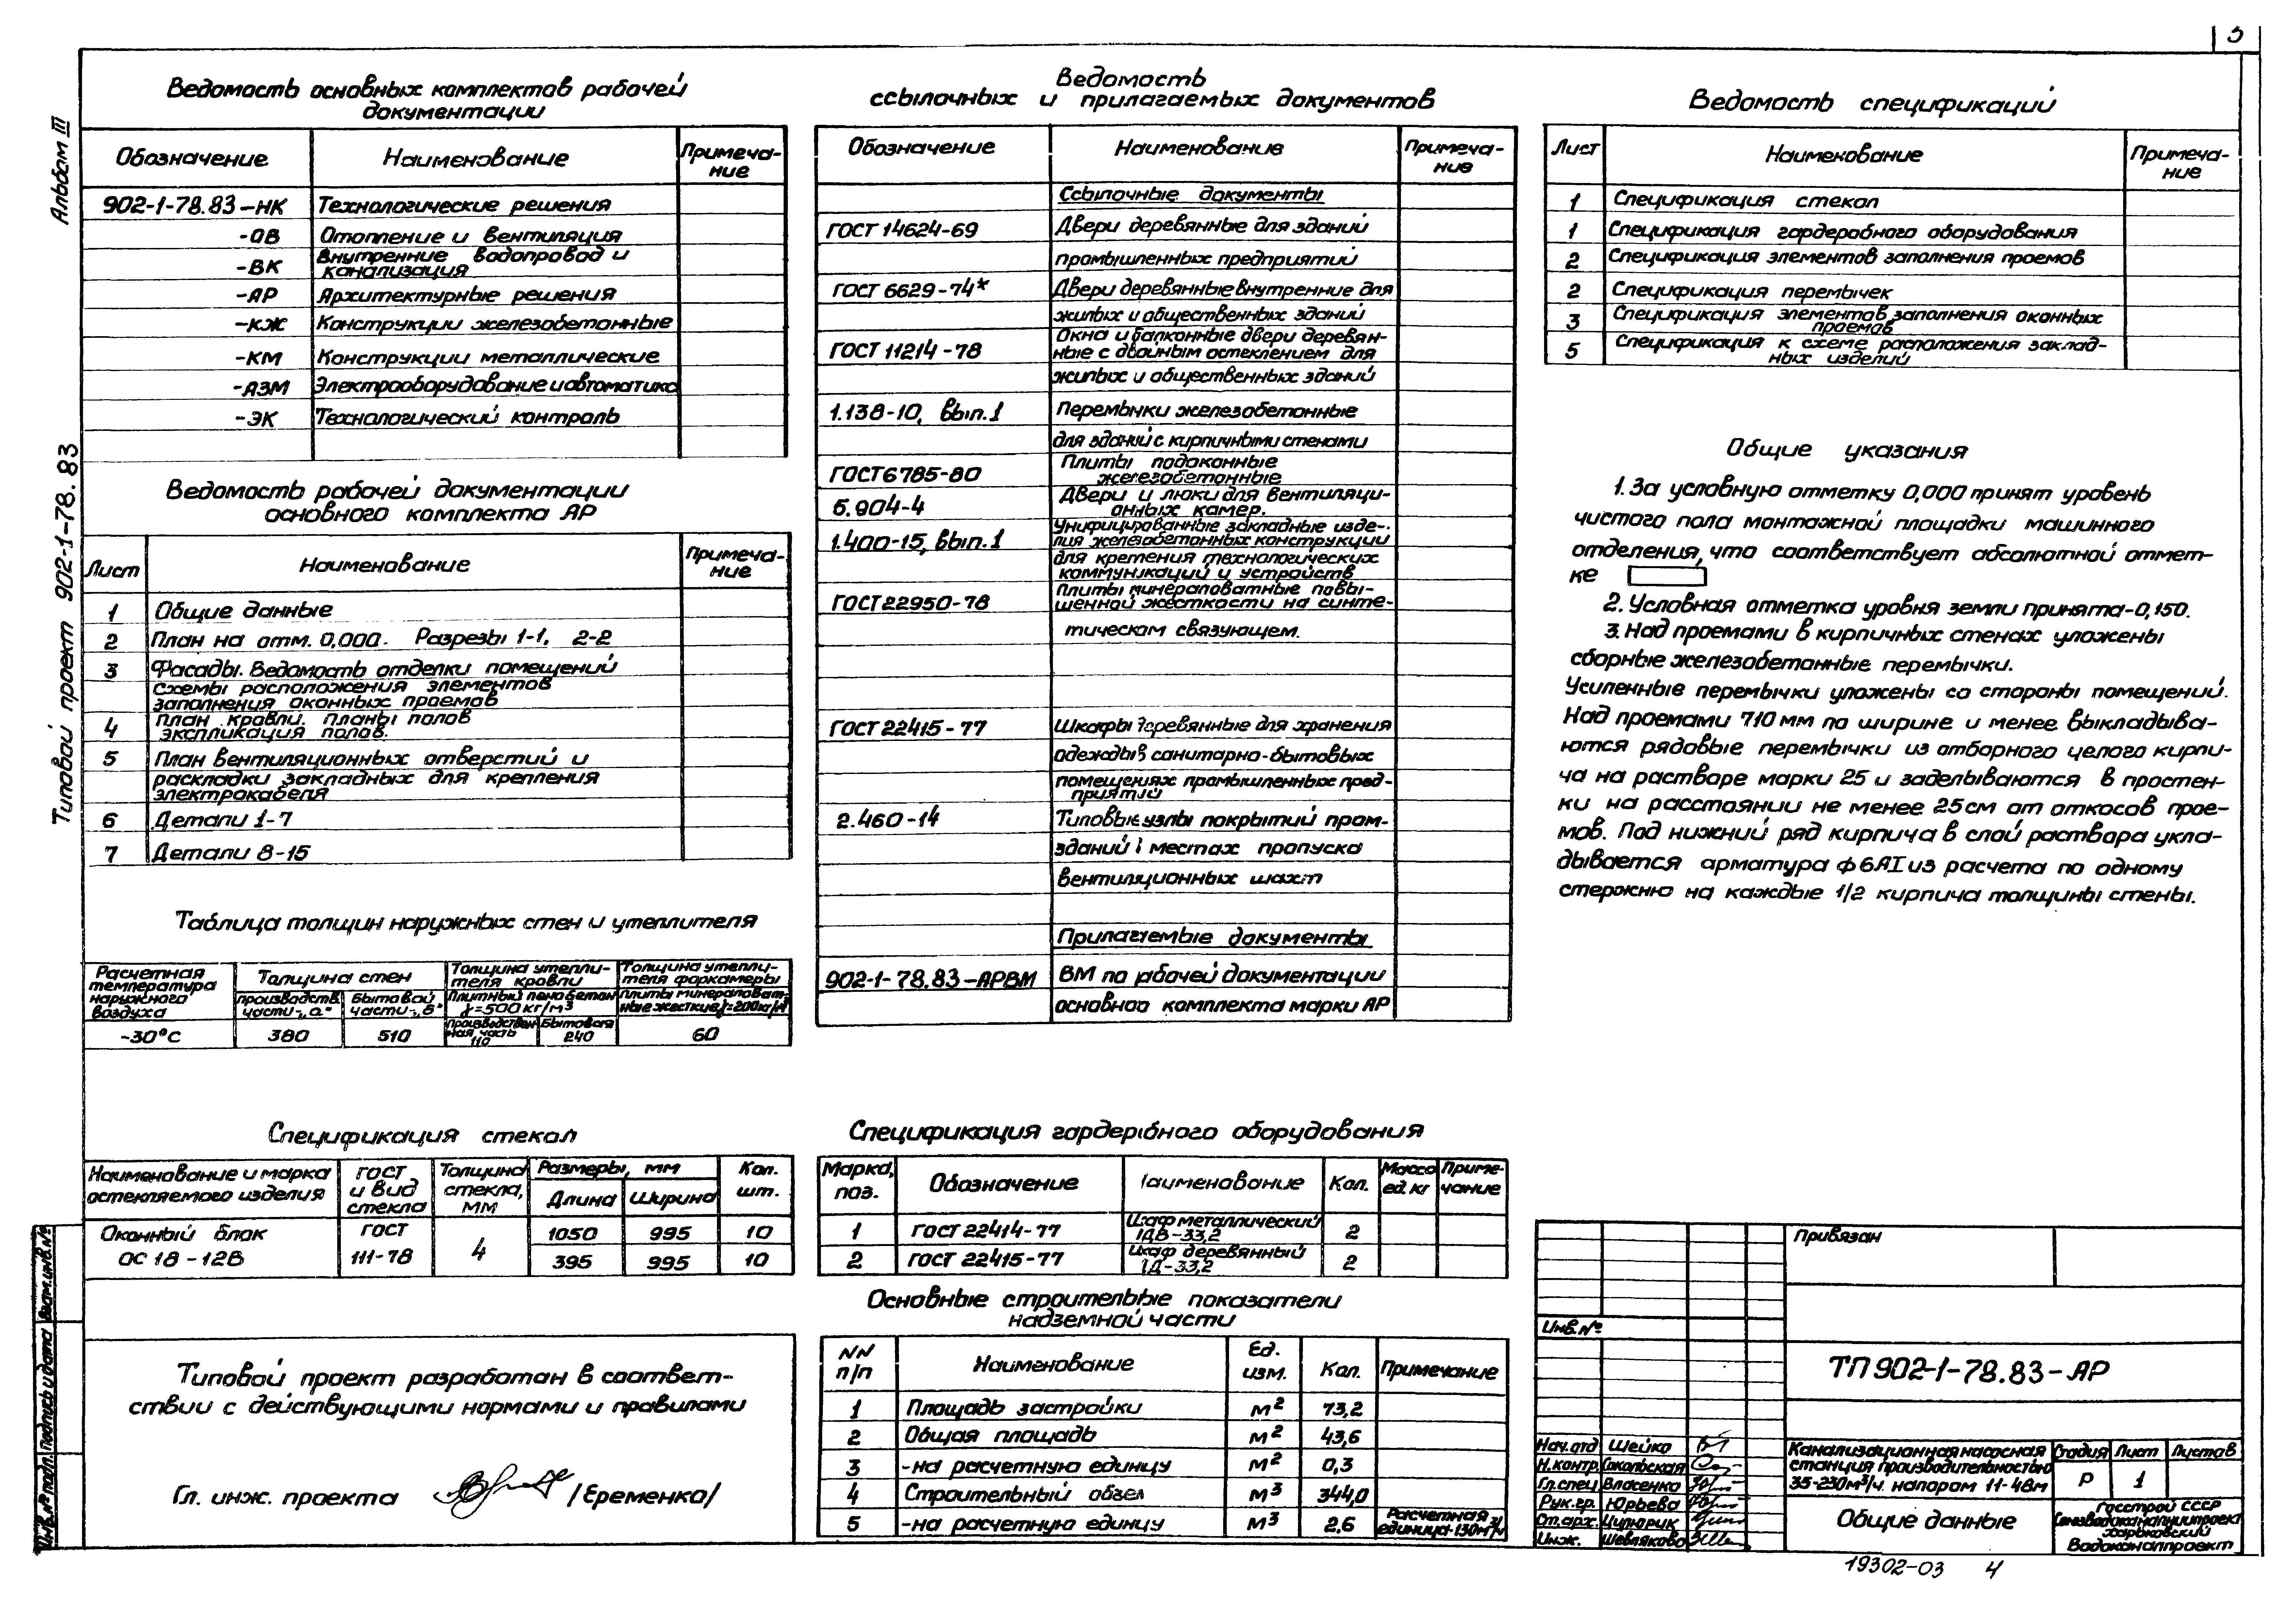 3
Альбом III
Типовой проект 902-1-78.83
Ведомость основных комплектов рабочей
документации
Обозначение Наименование Примеча-
ние
902-1-78.83-НК Технологические решения
-ОВ Отопление и вентиляция
-ВК Внутренние водопровод и
канализация
-АР Архитектурные решения
-КЖ Конструкции железобетонные
-КМ Конструкции металлические
-АЗМ Электрооборудование и автоматика
-ЭК Технологический контроль
Ведомость рабочей документации
основного комплекта АР
Лист Наименование Примеча-
ние
1 Общие данные
2 План на отм. 0,000. Разрезы 1-1, 2-2
3 Фасады. Ведомость отделки помещений
Схемы расположения элементов
заполнения оконных проемов
4 План кровли. Планы полов
экспликация полов.
5 План вентиляционных отверстий и
раскладки закладных для крепления
электрокабеля
6 Детали 1-7
7 Детали 8-15
Таблица толщин наружных стен и утеплителя
Расчетная
температура
наружного
воздуха
Толщина стен
производств.
части-„а"
Бытовой
части-„б"
Толщина утепли-
теля кровли
Плитный пенобетон
γ=500 кг/м³
Толщина утепли-
теля форкамеры
Плиты минераловат-
ные жесткие γ=200кг/м³
-30°С 380 510
Производствен
ная часть
110
Бытовая
240
60
Спецификация стекол
Наименование и марка
остекляемого изделия
ГОСТ
и вид
стекла
Толщина
стекла,
мм
Размеры, мм
Длина Ширина
Кол.
шт.
Оконный блок
ОС 18-12В
ГОСТ
111-78
4
1050 995 10
395 995 10
Типовой проект разработан в соответ-
ствии с действующими нормами и правилами
Гл. инж. проекта /Еременко/
Ведомость
ссылочных и прилагаемых документов
Обозначение Наименование Примеча-
ние
Ссылочные документы
ГОСТ 14624-69 Двери деревянные для зданий
промышленных предприятий
ГОСТ 6629-74* Двери деревянные внутренние для
жилых и общественных зданий
ГОСТ 11214-78 Окна и балконные двери деревян-
ные с двойным остеклением для
жилых и общественных зданий
1.138-10, вып.1 Перемычки железобетонные
для зданий с кирпичными стенами
ГОСТ 6785-80 Плиты подоконные
железобетонные
5.904-4 Двери и люки для вентиляци-
онных камер.
1.400-15, вып.1 Унифицированные закладные изде-
лия железобетонных конструкции
для крепения технологических
коммуникаций и устройств
ГОСТ 22950-78 Плиты минераловатные повы-
шенной жесткости на синте-
тическом связующем.
ГОСТ 22415-77 Шкафы деревянные для хранения
одежды в санитарно-бытовых
помещениях промышленных пред-
приятий
2.460-14 Типовые узлы покрытий пром-
зданий в местах пропуска
вентиляционных шахт
Прилагаемые документы
902-1-78.83-АРВМ ВМ по рабочей документации
основной комплекта марки АР
Спецификация гардеробного оборудования
Марка,
поз.
Обозначение Наименование Кол.
Масса
ед.кг
Приме-
чание
1 ГОСТ 22414-77 Шкаф металлический
1ДВ-33,2 2
2 ГОСТ 22415-77 Шкаф деревянный
1Д-33,2 2
Основные строительные показатели
надземной части
NN
п/п
Наименование
Ед.
изм.
Кол. Примечание
1 Площадь застройки м² 73,2
2 Общая площадь м² 43,6
3 -на расчетную единцу м² 0,3
4 Строительный объем м³ 344,0
5 -на расчетную единцу м³ 2,6 Расчетная
единица-130м³/ч
Ведомость спецификаций
Лист Наименование Примеча-
ние
1 Спецификация стекол
1 Спецификация гардеробного оборудования
2 Спецификация элементов заполнения проемов
2 Спецификация перемычек
3 Спецификация элементов заполнения оконных
проемов
5 Спецификация к схеме расположения заклад-
ных изделий
Общие указания
1. За условную отметку 0,000 принят уровень
чистого пола монтажной площадки машинного
отделения, что соответствует абсолютной отмет-
ке
2. Условная отметка уровня земли принята-0,150.
3. Над проемами в кирпичных стенах уложены
сборные железобетонные перемычки.
Усиленные перемычки уложены со стороны помещений.
Над проемами 710 мм по ширине и менее выкладыва-
ются рядовые перемычки из отборного целого кирпи-
ча на растворе марки 25 и заделываются в простен-
ки на расстоянии не менее 25 см от откосов прое-
мов. Под нижний ряд кирпича в слой раствора укла-
дывается арматура ф6АI из расчета по одному
стержню на каждые 1/2 кирпича толщины стены.
Привязан
Инв.№
ТП 902-1-78.83-АР
Нач.отд Шейко
Н.контр. Сокольская
Гл.спец. Власенко
Рук.гр. Юрьева
Ст.арх. Цупорик
Инж. Шевляково
Канализационная насосная
станция производительностью
35-230м³/ч. напором 11-48м
Стадия Лист Листов
Р 1
Общие данные
Госстрой СССР
Союзводоканалниипроект
Харьковский
Водоканалпроект
19302-03 4
Инв.№ подл. Подпись и дата Взам.инв.№